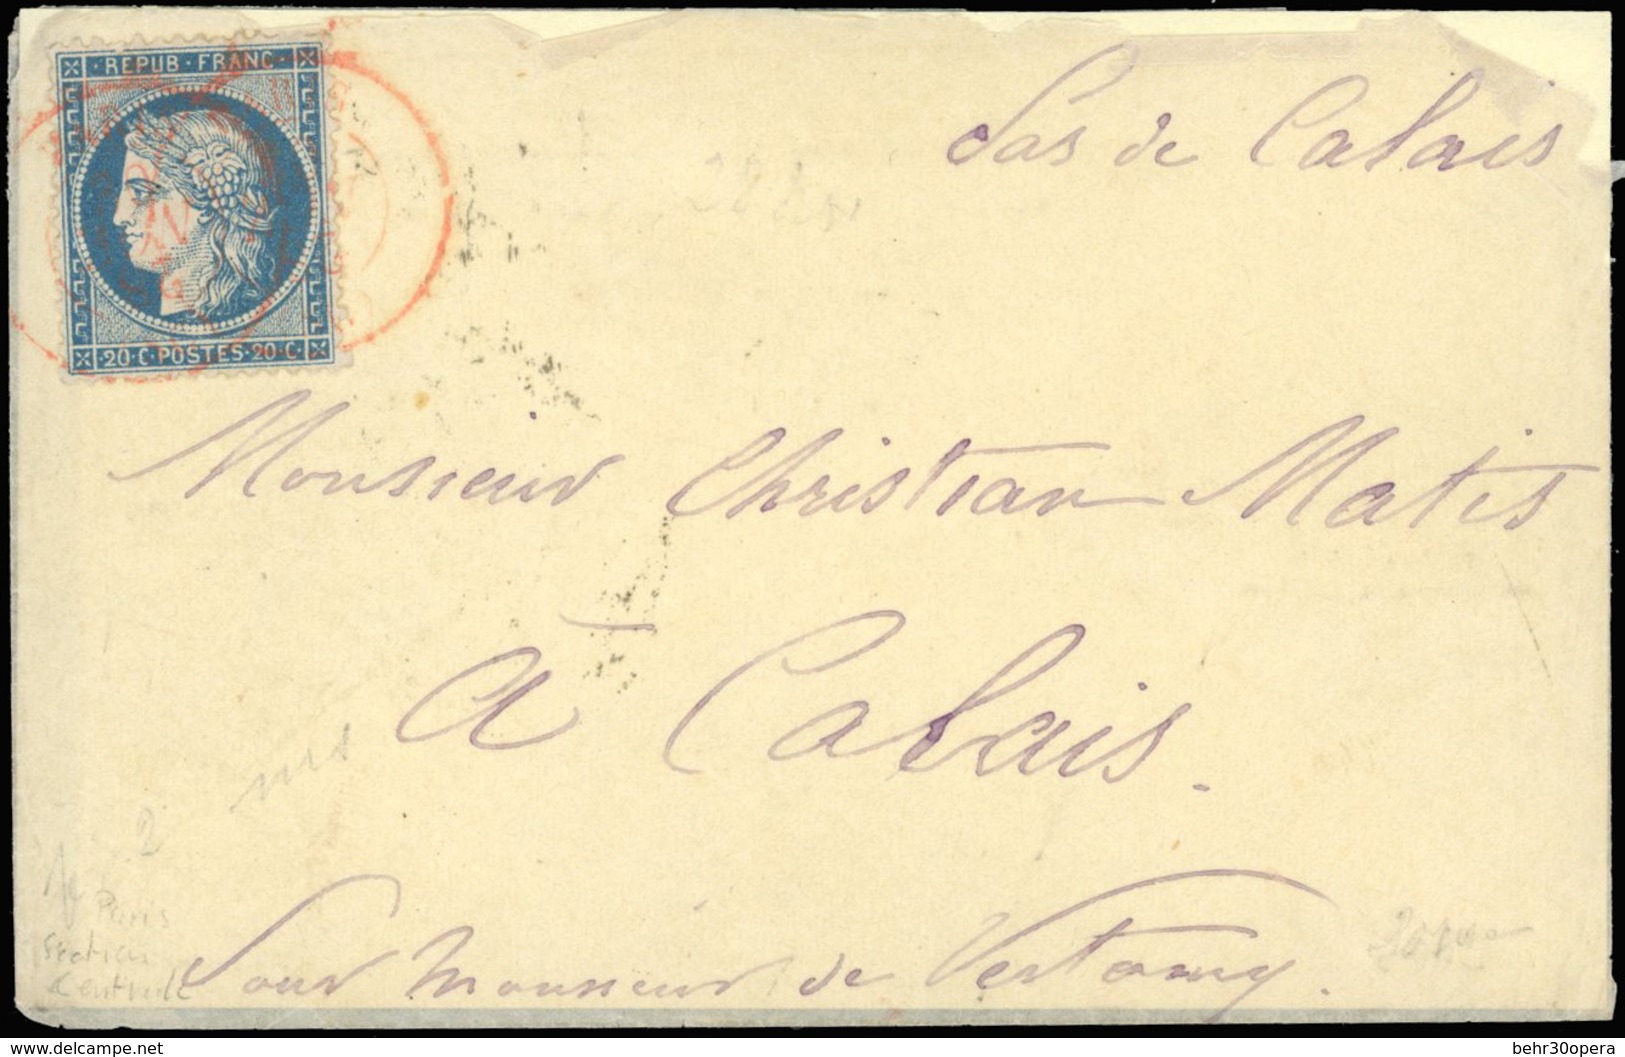 REPUB·FRANC·
·20·C·POSTES·20·C·
Pas de Calais
Monsieur Christian Matis
à Calais.
2
Paris
section
Centrale
Pour Monsieur de
www.delcampe.net
behr30opera